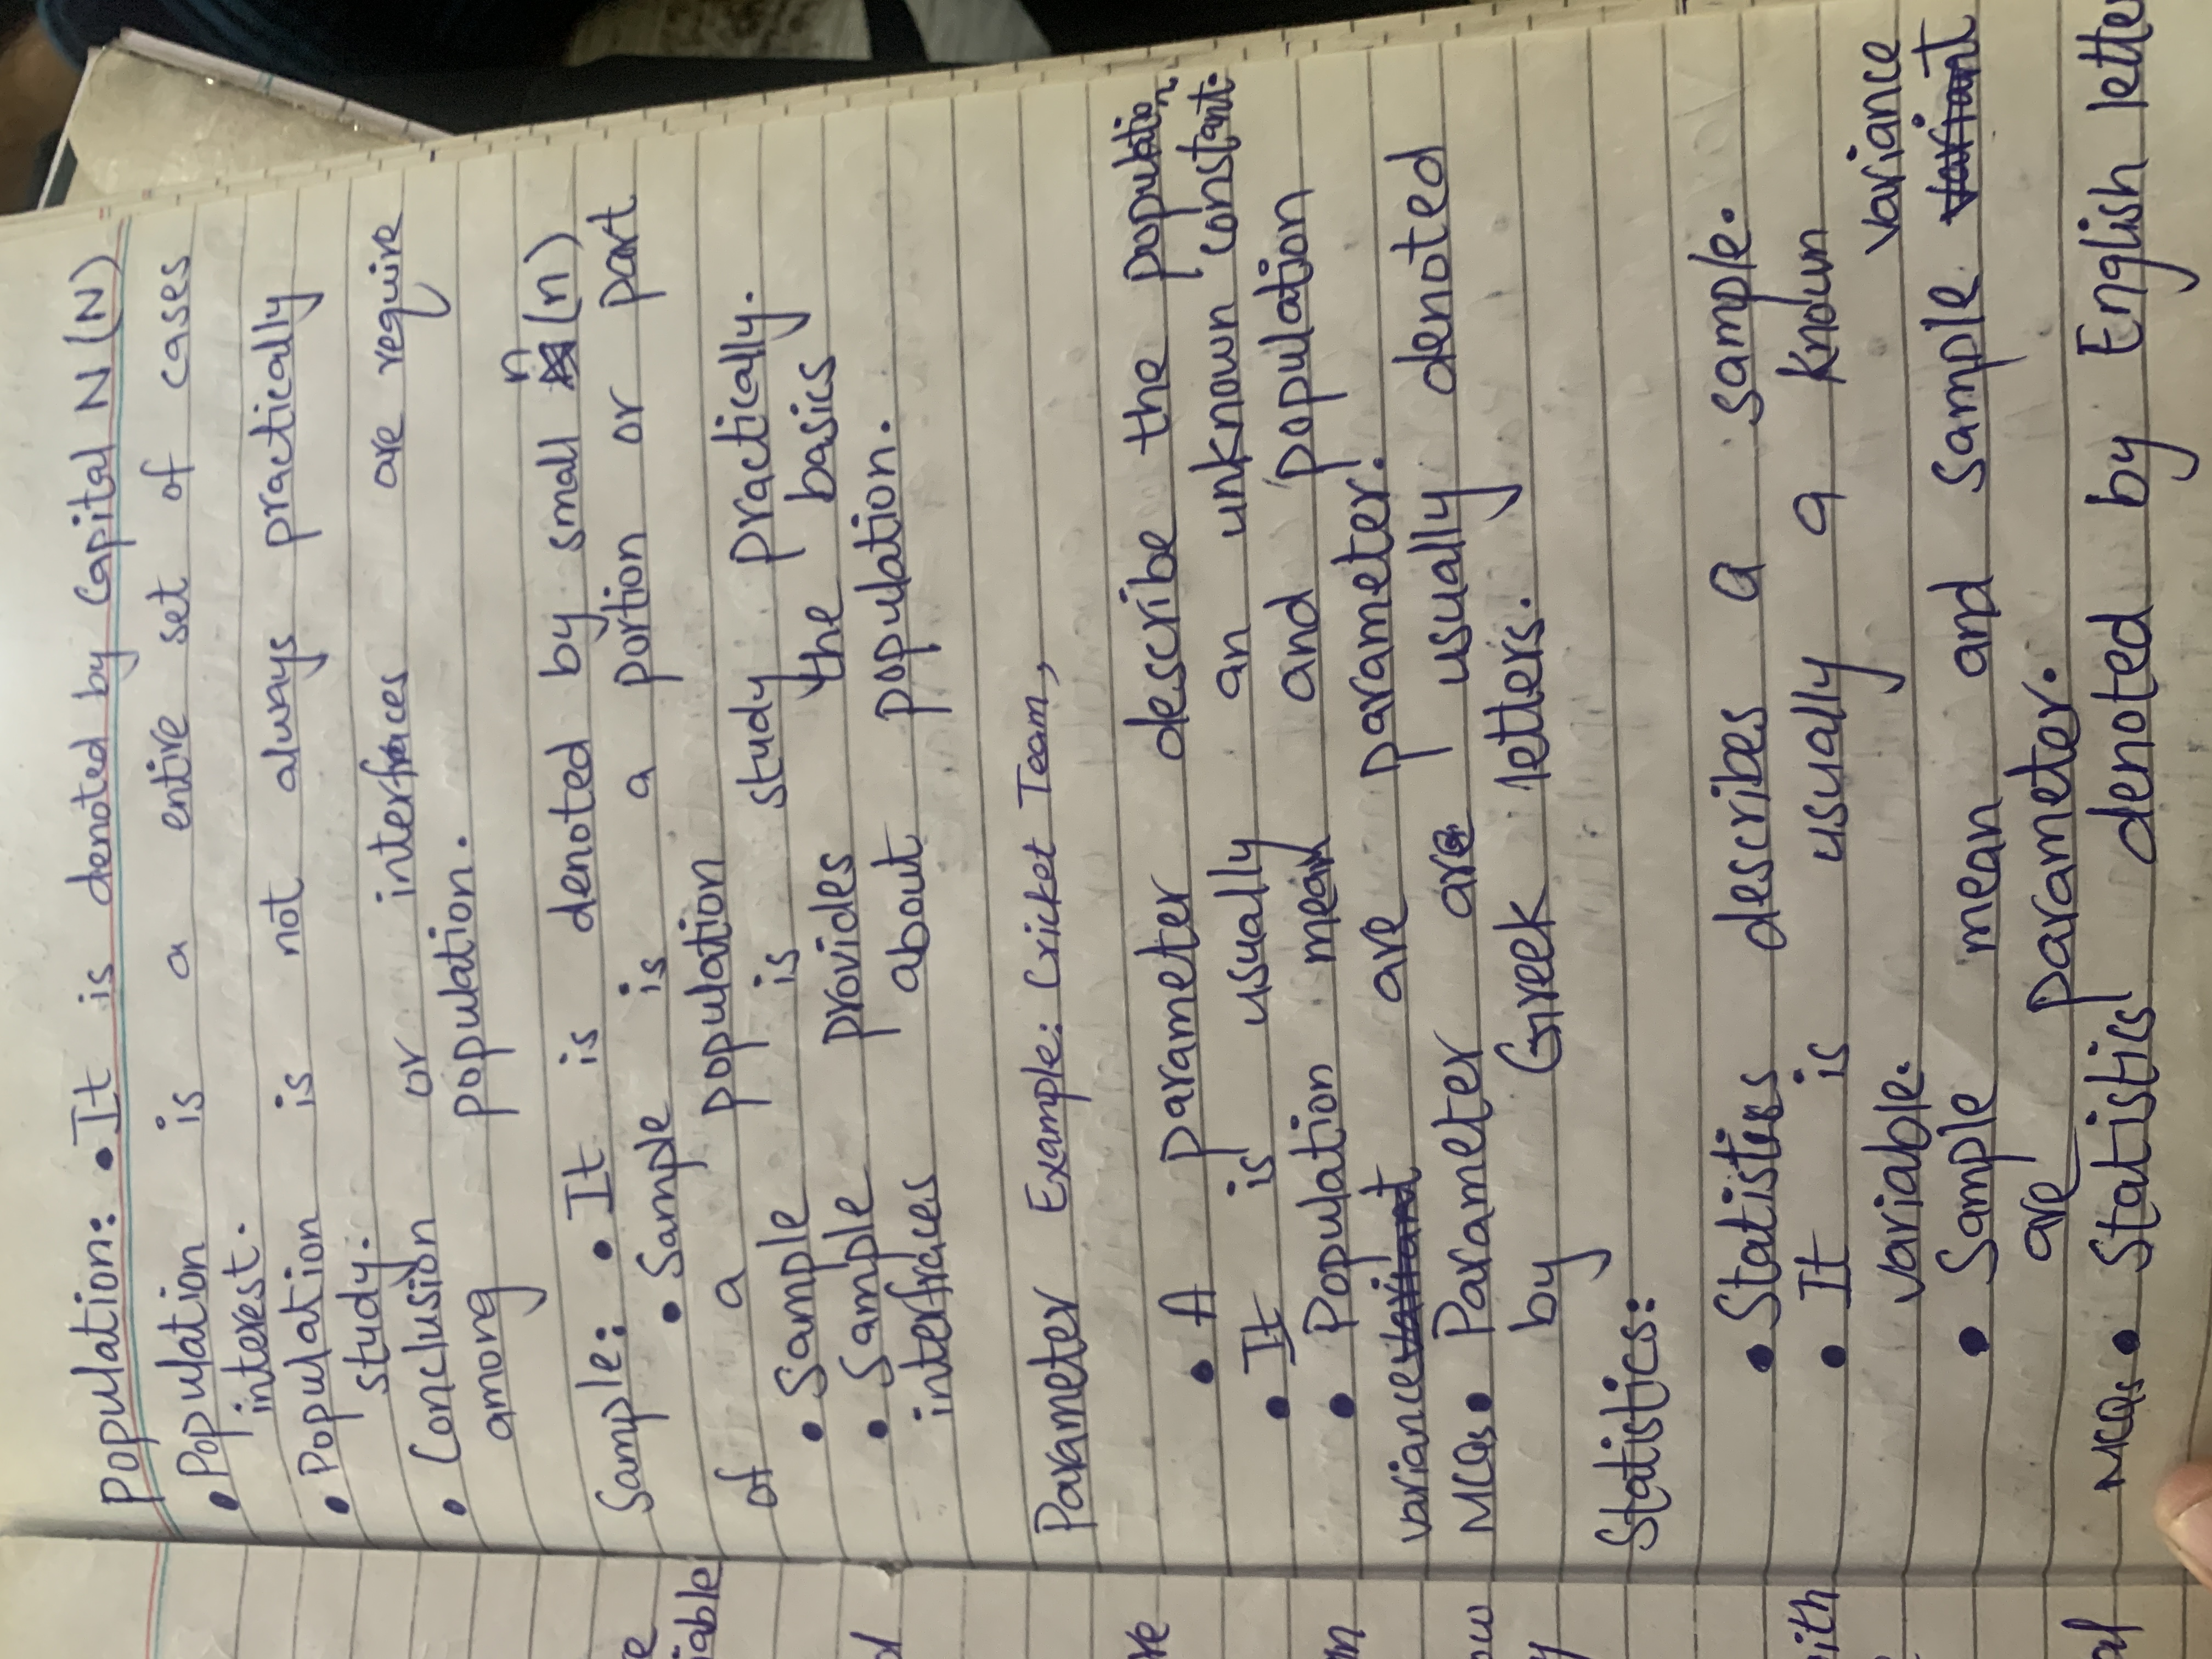 Population: • It is denoted by Capital N (N)
• Population is a entire set of cases
interest.
• Population is not always practically
study.
• Conclusion or interfraces are require
among population.
n
Sample: • It is denoted by small (n)
• Sample is a portion or part
of a population
• Sample is study practically.
• Sample provides the basics
interfraces about population.
Parameter Example: Cricket Team,
• A parameter describe the population
• It is usually an unknown constant.
• Population mean and population
variance variant are parameter.
MCQs • Parameter are usually denoted
by Greek letters.
Statistics:
• Statistics describes a sample.
• It is usually a known
variable.
variance
• Sample mean and sample variant
are parameter.
MCQs • Statistics denoted by English lette
e
iable
d
re
m
ow
y
ith
al